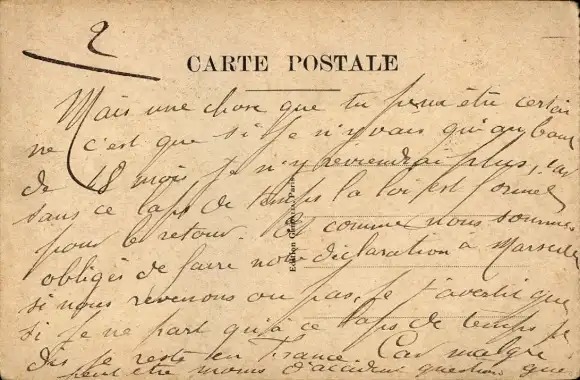 2
CARTE POSTALE
Mais une chose que tu peux être certai
ne c'est que si je n'y vais qu'au bout
de 18 mois je n'y reviendrai plus, car
dans ce laps de temps la loi est formel
pour le retour. Et comme nous sommes
obligés de faire notre déclaration a Marseille
si nous revenons ou pas, je t'avertit que
si je ne part qu'à ce laps de temps je
dis je reste en France. Car malgré
peut être moins d'accident question que
Edition Paris